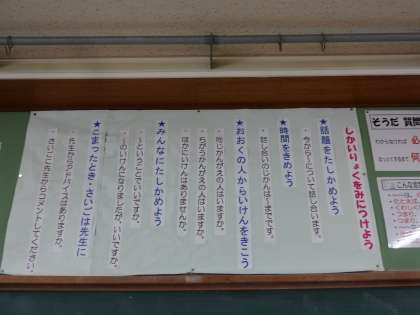 しかいりょくをみにつけよう
★話題をたしかめよう
・今から~について話し合います。
★時間をきめよう
・話し合いのじかんは~までです。
★おおくの人からいけんをきこう
・同じかんがえの人はいますか。
・ちがうかんがえの人はいますか。
・ほかにいけんはありませんか。
★みんなにたしかめよう
・~ということでいいですか。
・~のいけんになりましたが、いいですか。
★こまったとき・さいごは先生に
・先生からアドバイスはありますか。
・さいごに先生からコメントしてください。
そうだ 質問
必
何